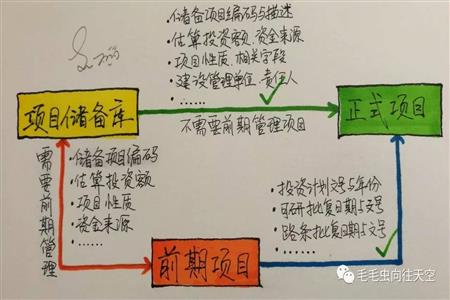 ·储备项目编码与描述
·估算投资额.资金来源
·项目性质.相关字段
·建设管理单位.责任人
·......
项目储备库
正式项目
不需要前期管理项目
需要前期管理
·储备项目编码
·估算投资额
·项目性质
·资金来源
·......
·投资计划文号与年份
·可研批复日期与文号
·路条批复日期与文号
·......
前期项目
毛毛虫向往天空